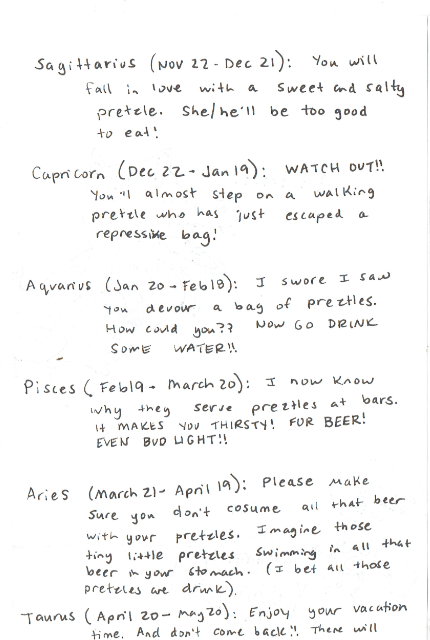 Sagittarius (Nov 22 - Dec 21): You will
fall in love with a sweet and salty
pretzle. She/he'll be too good
to eat!
Capricorn (Dec 22 - Jan 19): WATCH OUT!!
You'll almost step on a walking
pretzle who has just escaped a
repressive bag!
Aquarius (Jan 20 - Feb 18): I swore I saw
you devour a bag of preztles.
How could you?? NOW GO DRINK
SOME WATER!!
Pisces (Feb19 - March 20): I now know
why they serve preztles at bars.
It MAKES YOU THIRSTY! FOR BEER!
EVEN BUD LIGHT!!
Aries (March 21 - April 19): Please make
sure you don't cosume all that beer
with your pretzles. Imagine those
tiny little pretzles swimming in all that
beer in your stomach. (I bet all those
pretzles are drunk).
Taurus (April 20 - May 20): Enjoy your vacation
time. And don't come back!! There will